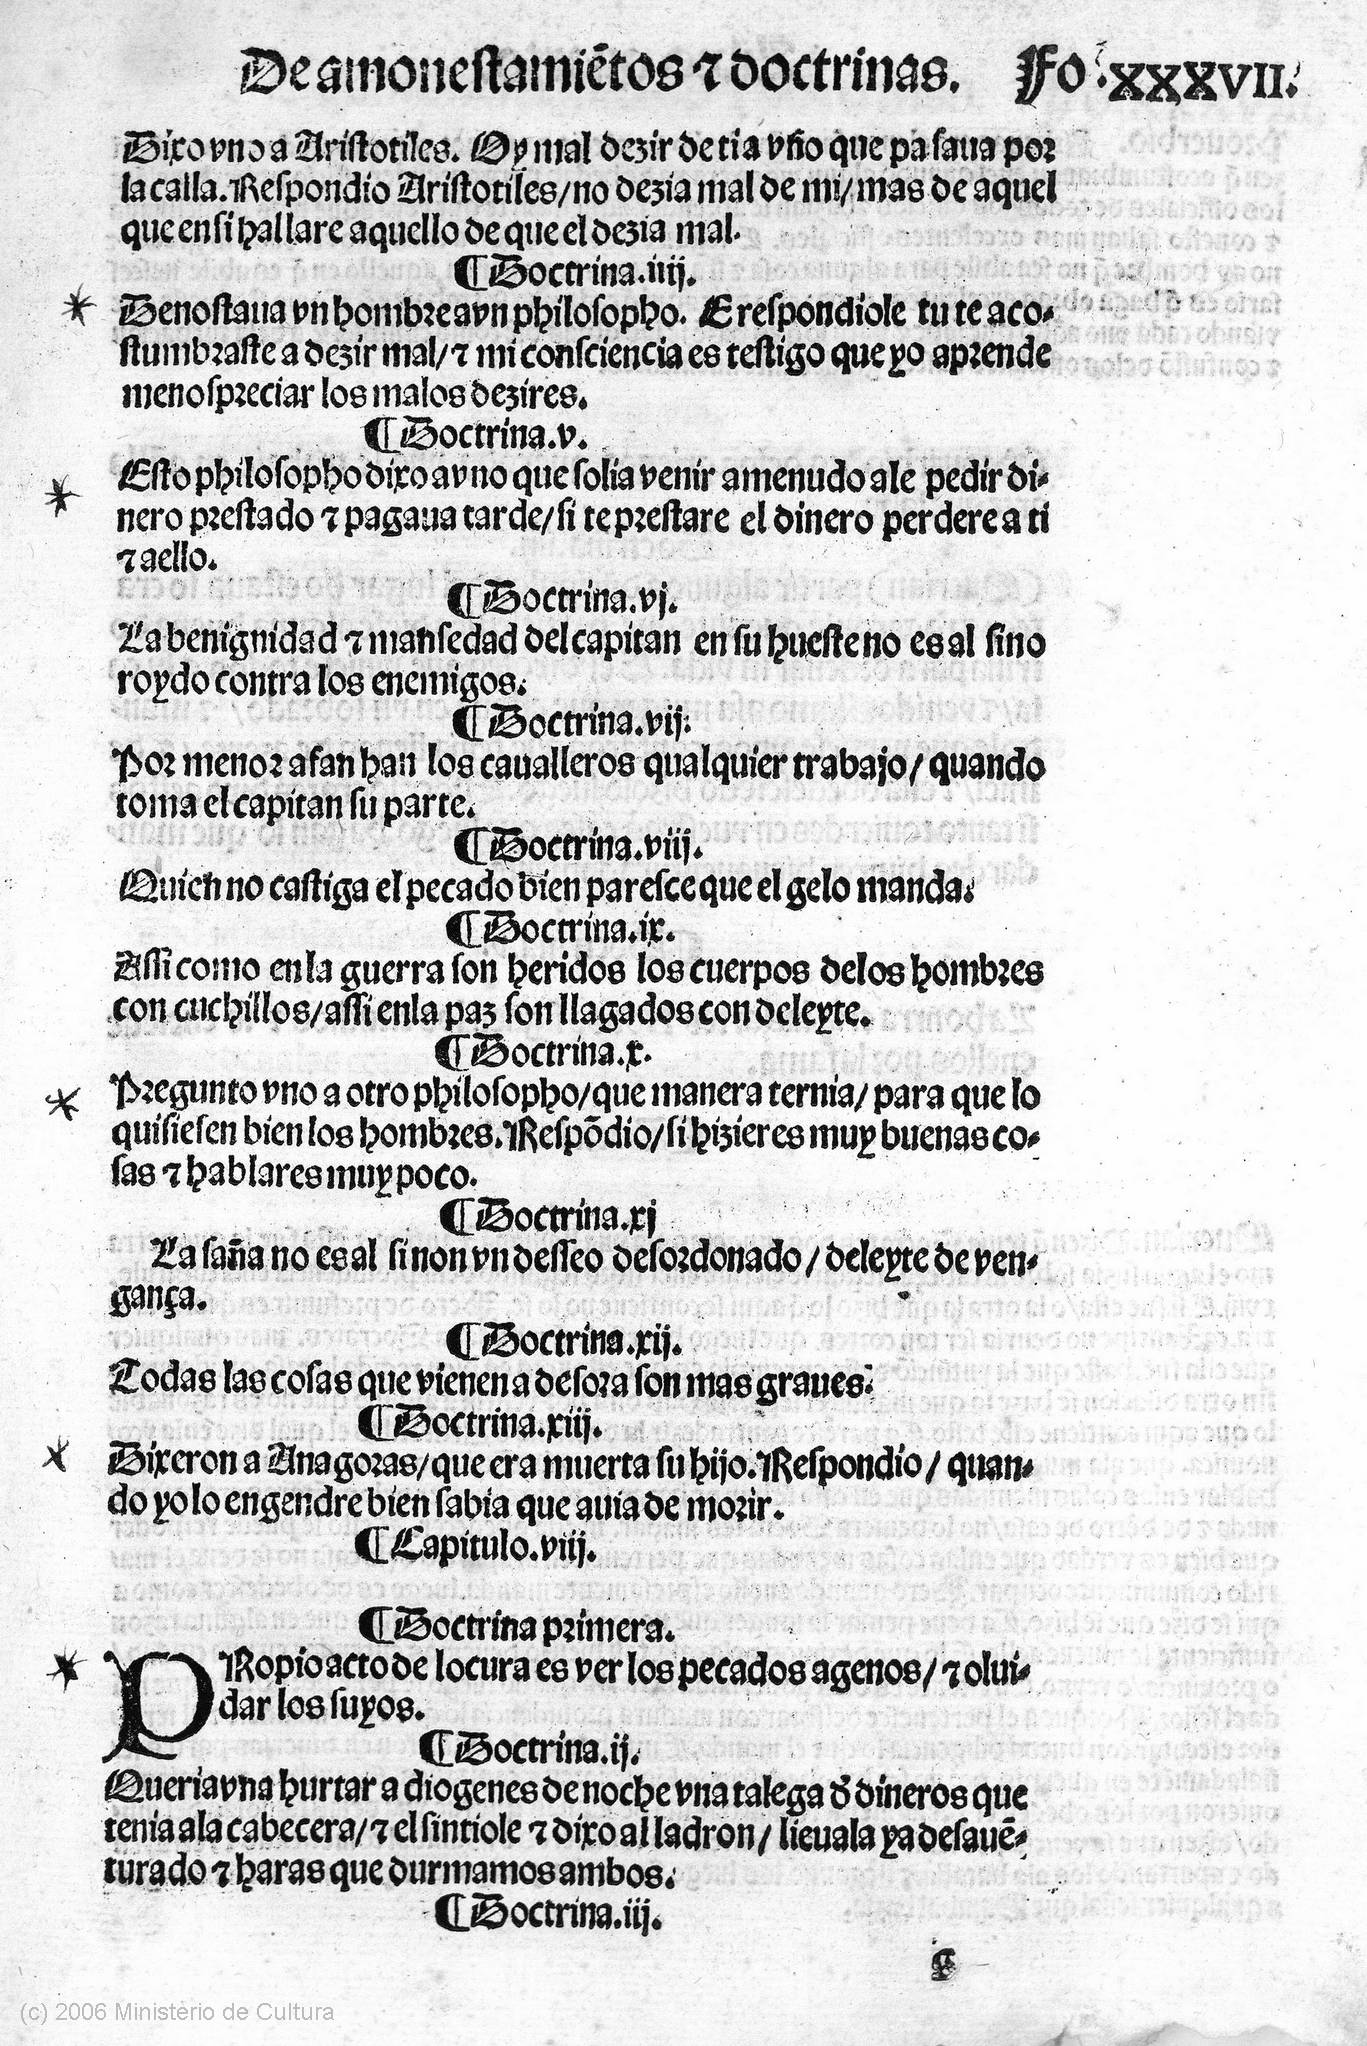 De amonestamiẽtos ⁊ doctrinas. Fo. XXXVII.
Dixo vno a Aristotiles. Oy mal dezir de tia vño que pasaua por
la calla. Respondio Aristotiles/no dezia mal de mi/mas de aquel
que ensi hallare aquello de que el dezia mal.
¶Doctrina.iiij.
Denostaua vn hombre avn philosopho. E respondiole tu te aco-
stumbraste a dezir mal/⁊ mi consciencia es testigo que yo aprende
menospreciar los malos dezires.
¶Doctrina.v.
Esto philosopho dixo avno que solia venir amenudo ale pedir di-
nero prestado ⁊ pagaua tarde/si te prestare el dinero perdere a ti
⁊ aello.
¶Doctrina.vj.
La benignidad ⁊ mansedad del capitan en su hueste no es al sino
roydo contra los enemigos.
¶Doctrina.vij.
Por menor afan han los caualleros qualquier trabajo/quando
toma el capitan su parte.
¶Doctrina.viij.
Quien no castiga el pecado bien paresce que el gelo manda.
¶Doctrina.ix.
Assi como enla guerra son heridos los cuerpos delos hombres
con cuchillos/assi enla paz son llagados con deleyte.
¶Doctrina.x.
Pregunto vno a otro philosopho/que manera ternia/para que lo
quisiesen bien los hombres. Respõdio/si hizieres muy buenas co-
sas ⁊ hablares muy poco.
¶Doctrina.xj
La saña no es al sinon vn desseo desordonado/deleyte de ven-
gança.
¶Doctrina.xij.
Todas las cosas que vienen a desora son mas graues.
¶Doctrina.xiij.
Dixeron a Anagoras/que era muerta su hijo. Respondio/quan-
do yo lo engendre bien sabia que auia de morir.
¶Capitulo.viij.
¶Doctrina primera.
PRopio acto de locura es ver los pecados agenos/⁊ olui-
dar los suyos.
¶Doctrina.ij.
Queria vna hurtar a diogenes de noche vna talega đ dineros que
tenia ala cabecera/⁊ el sintiole ⁊ dixo al ladron/lieuala ya desauẽ-
turado ⁊ haras que durmamos ambos.
¶Doctrina.iij.
(c) 2006 Ministerio de Cultura